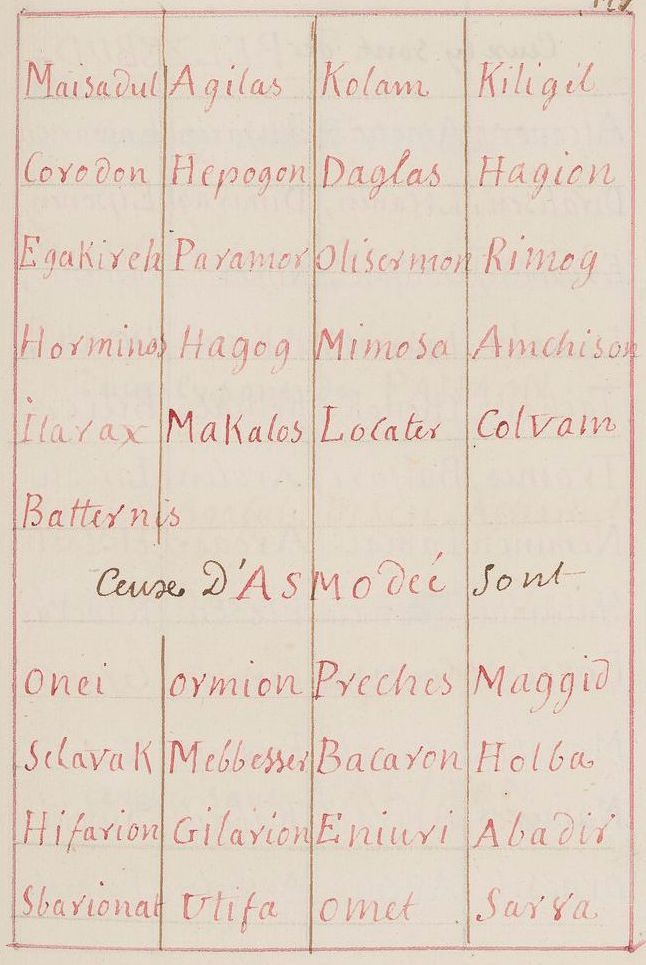 Maisadul Agilas Kolam Kiligil
Corodon Hepogon Daglas Hagion
Egakireh Paramor Olisermon Rimog
Horminos Hagog Mimosa Amchison
Ilarax Makalos Locater Colvam
Batternis
Ceux D'ASMODeé sont
Onei ormion Preches Maggid
Sclavak Mebbesser Bacaron Holba
Hifarion Gilarion Eniuri Abadir
Sbarionat Utifa omet Sarra